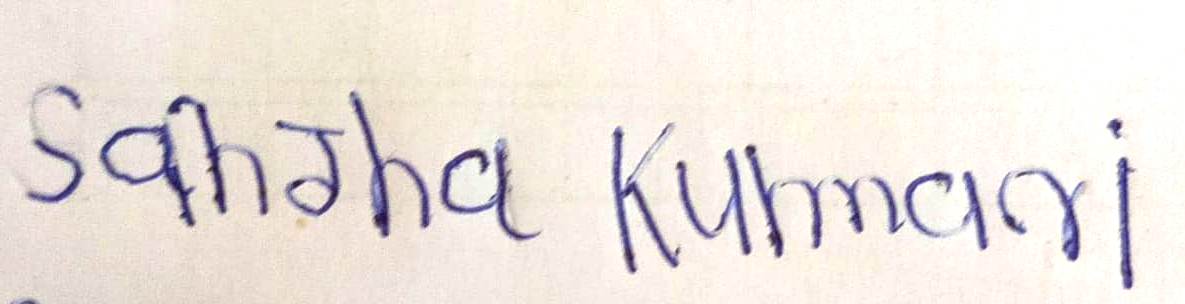 SanJha Kumari